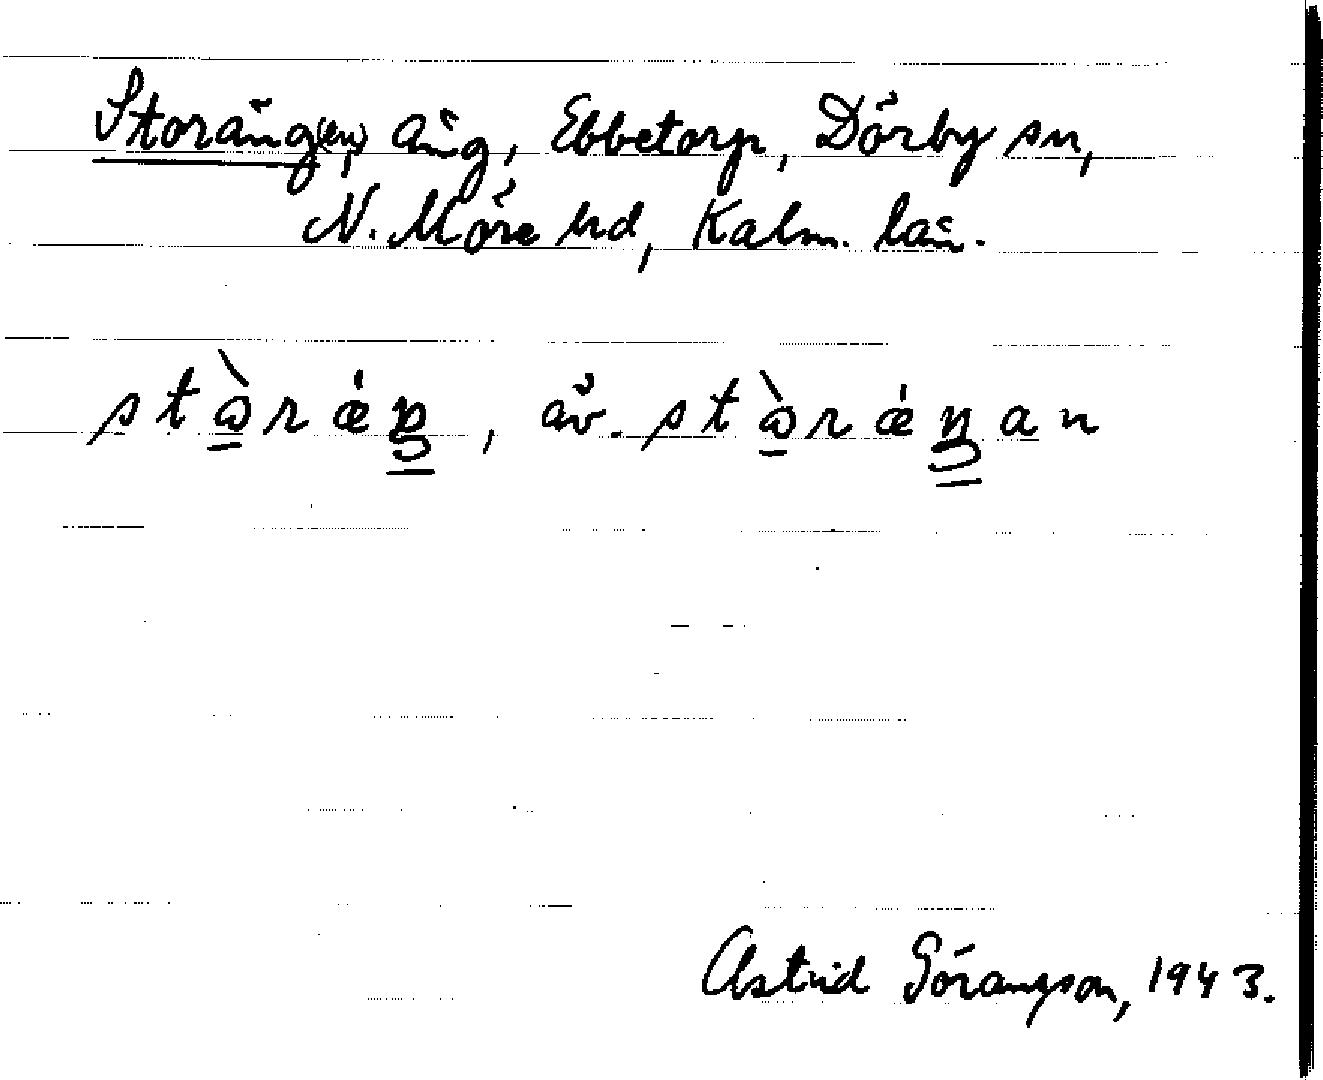 Storäng(en), äng, Ebbetorp, Dörby sn,
N. Möre hd, Kalm. län.
stὼrǽŋ, äv. stὼrǽŋan
Astrid Görangson, 1943.